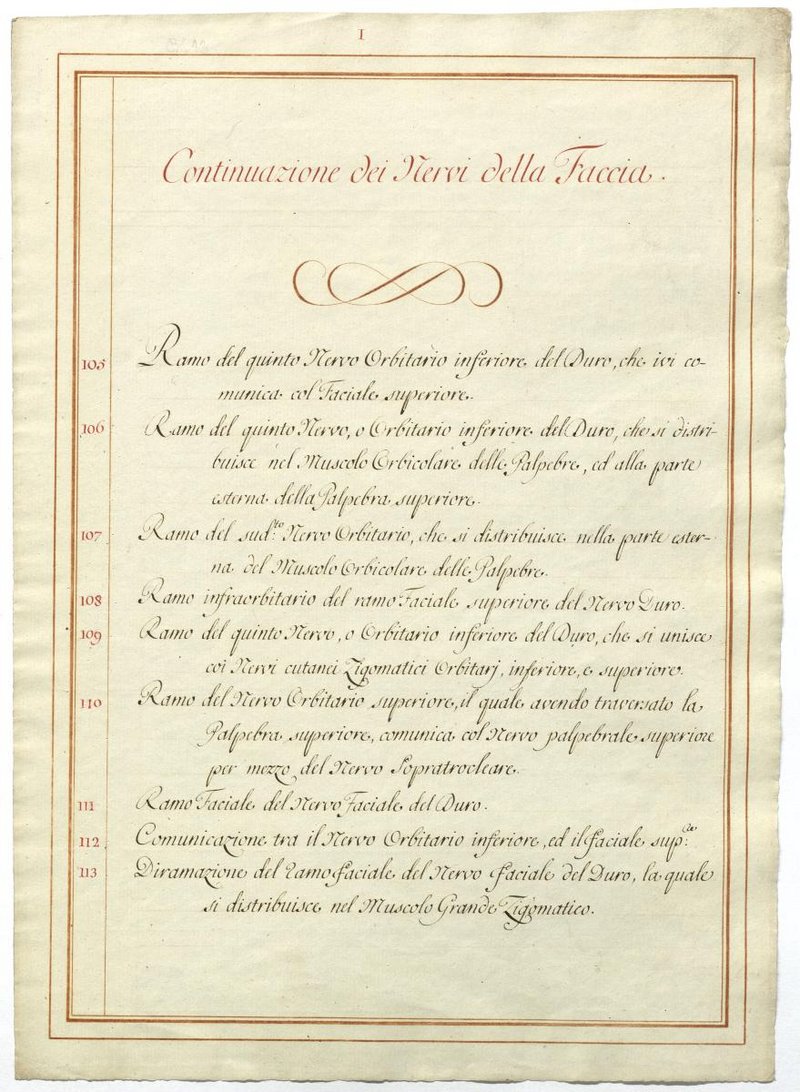 I
Continuazione dei Nervi della Faccia.
105 Ramo del quinto Nervo Orbitario inferiore del Duro, che ivi co-
munica col Faciale superiore.
106 Ramo del quinto Nervo, o Orbitario inferiore del Duro, che si distri-
buisce nel Muscolo Orbicolare delle Palpebre, ed alla parte
esterna della Palpebra superiore.
107 Ramo del sud.to Nervo Orbitario, che si distribuisce nella parte ester-
na del Muscolo Orbicolare delle Palpebre.
108 Ramo infraorbitario del ramo Faciale superiore del Nervo Duro.
109 Ramo del quinto Nervo, o Orbitario inferiore del Duro, che si unisce
coi Nervi cutanei Zigomatici Orbitarj, inferiore, e superiore.
110 Ramo del Nervo Orbitario superiore, il quale avendo traversato la
Palpebra superiore, comunica col Nervo palpebrale superiore
per mezzo del Nervo Sopratrocleare.
111 Ramo Faciale del Nervo Faciale del Duro.
112 Comunicazione tra il Nervo Orbitario inferiore, ed il faciale sup.re
113 Diramazione del ramo faciale del Nervo faciale del Duro, la quale
si distribuisce nel Muscolo Grande Zigomatico.